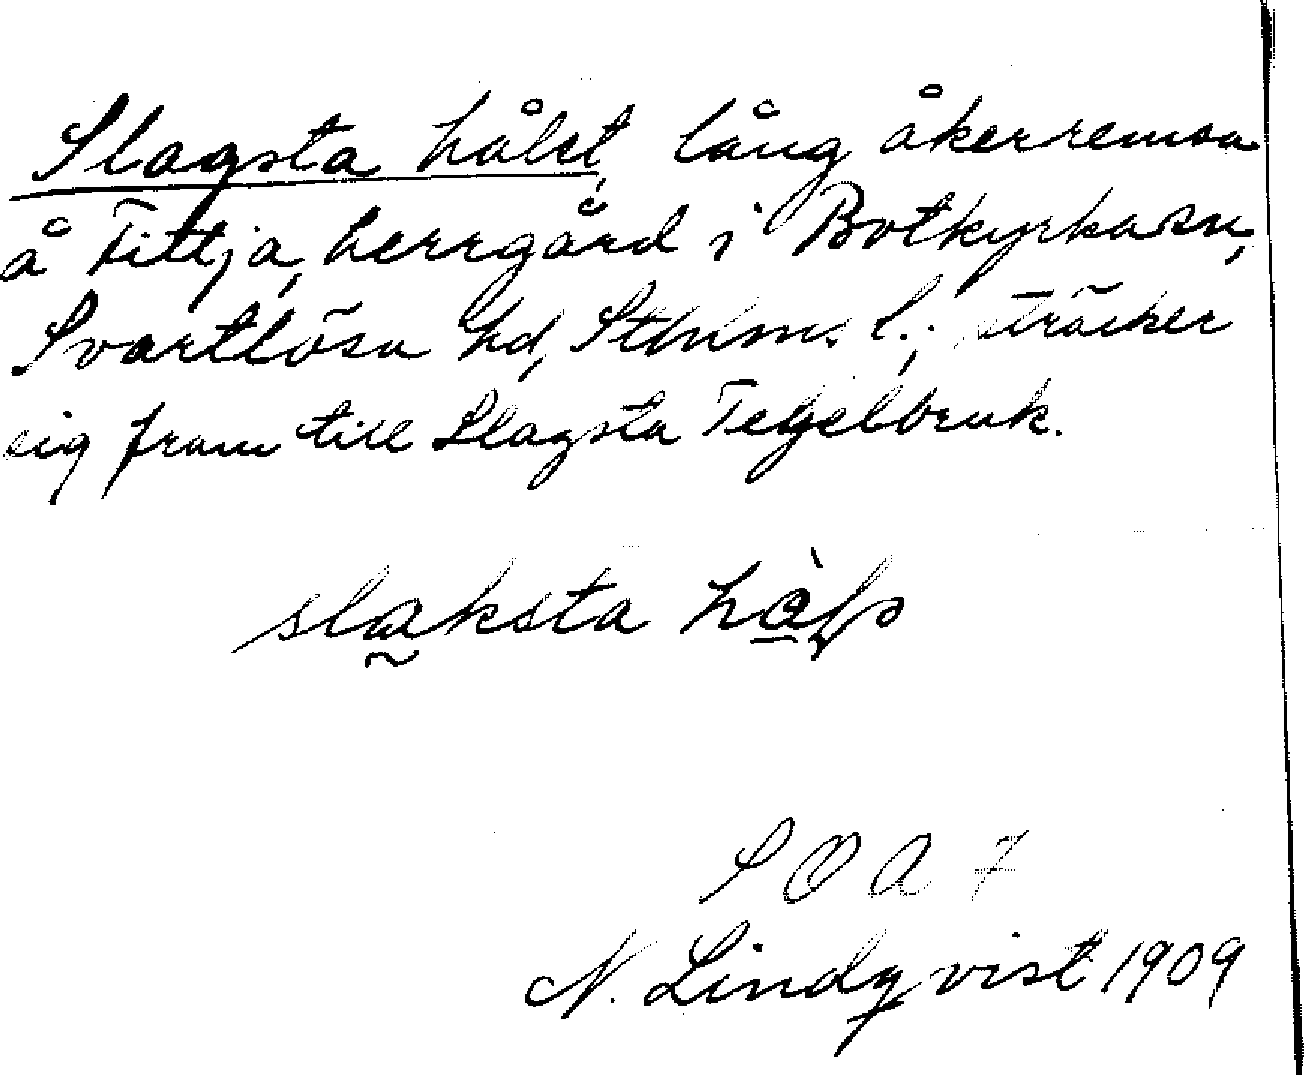 Slagsta hålet, lång åkerremsa
å Fittja, herrgård i Botkyrka sn,
Svartlösa hd, Sthlms l.; sträcker
sig fram till Slagsta Tegelbruk.
slaksta
S O A 7
N. Lindqvist 1909